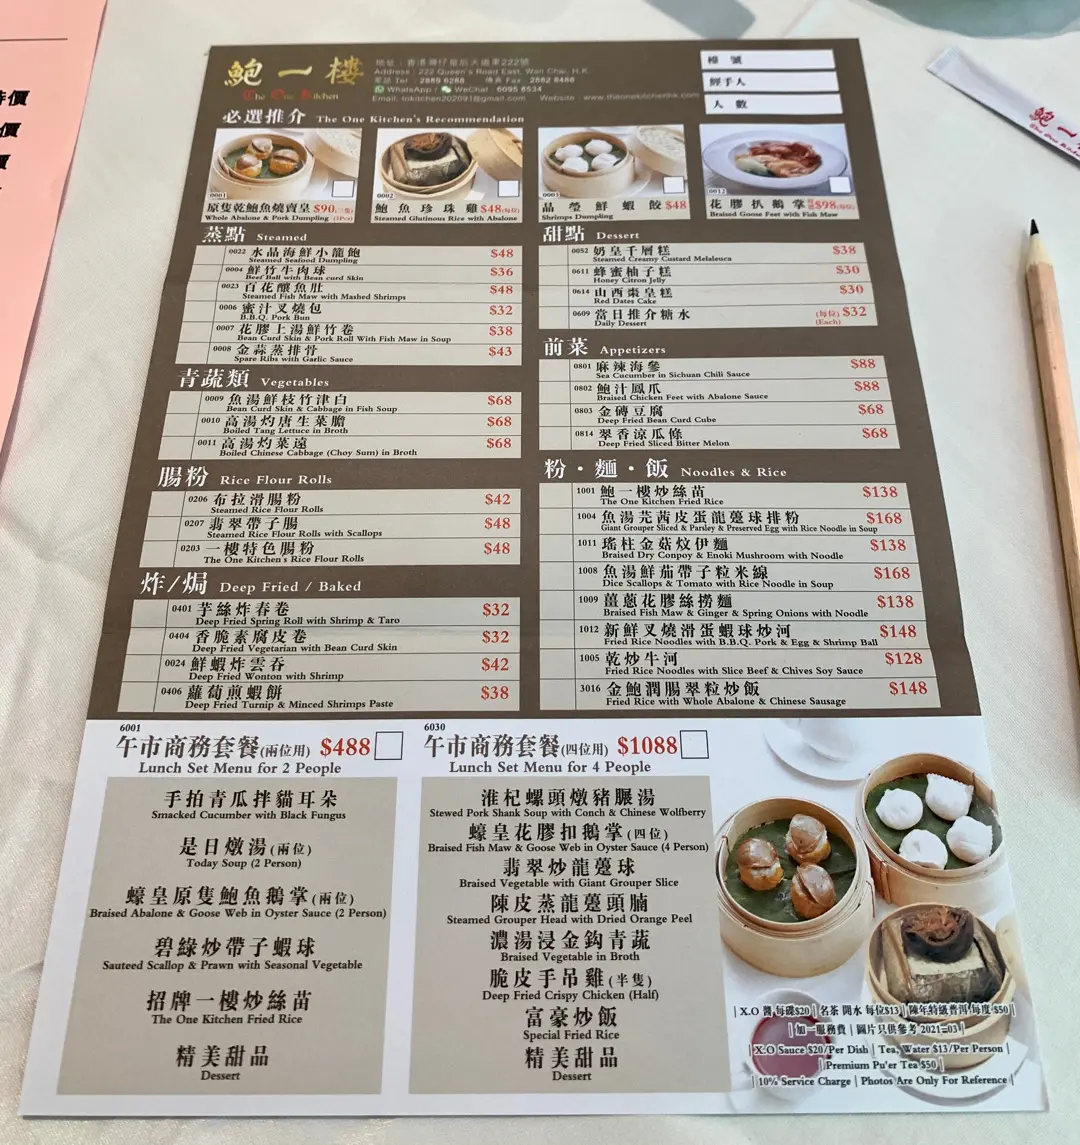 特價
價
價
鮑一樓
The One Kitchen
地址：香港灣仔皇后大道東222號
Address : 222 Queen's Road East, Wan Chai, H.K.
電話 Tel : 2889 6288 傳真 Fax : 2882 8488
WhatsApp / WeChat : 6095 6534
Email: tokitchen202091@gmail.com Website : www.theonekitchenhk.com
檯 號
經手人
人 數
鮑一
The One Kitchen
必選推介 The One Kitchen's Recommendation
0001
原隻乾鮑魚燒賣皇 $90
Whole Abalone & Pork Dumpling
0002
鮑魚珍珠雞 $48(每位)
Steamed Glutinous Rice with Abalone
0003
晶瑩鮮蝦餃 $48
Shrimps Dumpling
0012
花膠扒鵝掌 $98(每位)
Braised Goose Feet with Fish Maw
蒸點 Steamed
0022 水晶海鮮小籠飽 $48
Steamed Seafood Dumpling
0004 鮮竹牛肉球 $36
Beef Ball with Bean curd Skin
0023 百花釀魚肚 $48
Steamed Fish Maw with Mashed Shrimps
0006 蜜汁叉燒包 $32
B.B.Q. Pork Bun
0007 花膠上湯鮮竹卷 $38
Bean Curd Skin & Pork Roll With Fish Maw in Soup
0008 金蒜蒸排骨 $43
Spare Ribs with Garlic Sauce
青蔬類 Vegetables
0009 魚湯鮮枝竹津白 $68
Bean Curd Skin & Cabbage in Fish Soup
0010 高湯灼唐生菜膽 $68
Boiled Tang Lettuce in Broth
0011 高湯灼菜遠 $68
Boiled Chinese Cabbage (Choy Sum) in Broth
腸粉 Rice Flour Rolls
0206 布拉滑腸粉 $42
Steamed Rice Flour Rolls
0207 翡翠帶子腸 $48
Steamed Rice Flour Rolls with Scallops
0203 一樓特色腸粉 $48
The One Kitchen's Rice Flour Rolls
炸/焗 Deep Fried / Baked
0401 芋絲炸春卷 $32
Deep Fried Spring Roll with Shrimp & Taro
0404 香脆素腐皮卷 $32
Deep Fried Vegetarian with Bean Curd Skin
0024 鮮蝦炸雲吞 $42
Deep Fried Wonton with Shrimp
0406 蘿蔔煎蝦餅 $38
Deep Fried Turnip & Minced Shrimps Paste
甜點 Dessert
0052 奶皇千層糕 $38
Steamed Creamy Custard Melaleuca
0611 蜂蜜柚子糕 $30
Honey Citron Jelly
0614 山西棗皇糕 $30
Red Dates Cake
0609 當日推介糖水 (每位) $32
Daily Dessert (Each)
前菜 Appetizers
0801 麻辣海參 $88
Sea Cucumber in Sichuan Chili Sauce
0802 鮑汁鳳爪 $88
Braised Chicken Feet with Abalone Sauce
0803 金磚豆腐 $68
Deep Fried Bean Curd Cube
0814 翠香涼瓜條 $68
Deep Fried Sliced Bitter Melon
粉・麵・飯 Noodles & Rice
1001 鮑一樓炒絲苗 $138
The One Kitchen Fried Rice
1004 魚湯芫茜皮蛋龍躉球排粉 $168
Giant Grouper Sliced & Parsley & Preserved Egg with Rice Noodle in Soup
1011 瑤柱金菇炆伊麵 $138
Braised Dry Conpoy & Enoki Mushroom with Noodle
1008 魚湯鮮茄帶子粒米線 $168
Dice Scallops & Tomato with Rice Noodle in Soup
1009 薑蔥花膠絲撈麵 $138
Braised Fish Maw & Ginger & Spring Onions with Noodle
1012 新鮮叉燒滑蛋蝦球炒河 $148
Fried Rice Noodles with B.B.Q. Pork & Egg & Shrimp Ball
1005 乾炒牛河 $128
Fried Rice Noodles with Slice Beef & Chives Soy Sauce
3016 金鮑潤腸翠粒炒飯 $148
Fried Rice with Whole Abalone & Chinese Sausage
6001
午市商務套餐(兩位用) $488
Lunch Set Menu for 2 People
手拍青瓜拌貓耳朵
Smacked Cucumber with Black Fungus
是日燉湯(兩位)
Today Soup (2 Person)
蠔皇原隻鮑魚鵝掌(兩位)
Braised Abalone & Goose Web in Oyster Sauce (2 Person)
碧綠炒帶子蝦球
Sauteed Scallop & Prawn with Seasonal Vegetable
招牌一樓炒絲苗
The One Kitchen Fried Rice
精美甜品
Dessert
6030
午市商務套餐(四位用) $1088
Lunch Set Menu for 4 People
淮杞螺頭燉豬𦟌湯
Stewed Pork Shank Soup with Conch & Chinese Wolfberry
蠔皇花膠扣鵝掌(四位)
Braised Fish Maw & Goose Web in Oyster Sauce (4 Person)
翡翠炒龍躉球
Braised Vegetable with Giant Grouper Slice
陳皮蒸龍躉頭腩
Steamed Grouper Head with Dried Orange Peel
濃湯浸金鈎青蔬
Braised Vegetable in Broth
脆皮手吊雞(半隻)
Deep Fried Crispy Chicken (Half)
富豪炒飯
Special Fried Rice
精美甜品
Dessert
| X.O 醬 每碟$20 | 名茶 開水 每位$13 | 陳年特級普洱 每度 $50 |
| 加一服務費 | 圖片只供參考 2021-03 |
| X.O Sauce $20/Per Dish | Tea, Water $13/Per Person |
| Premium Pu'er Tea $50 |
| 10% Service Charge | Photos Are Only For Reference |